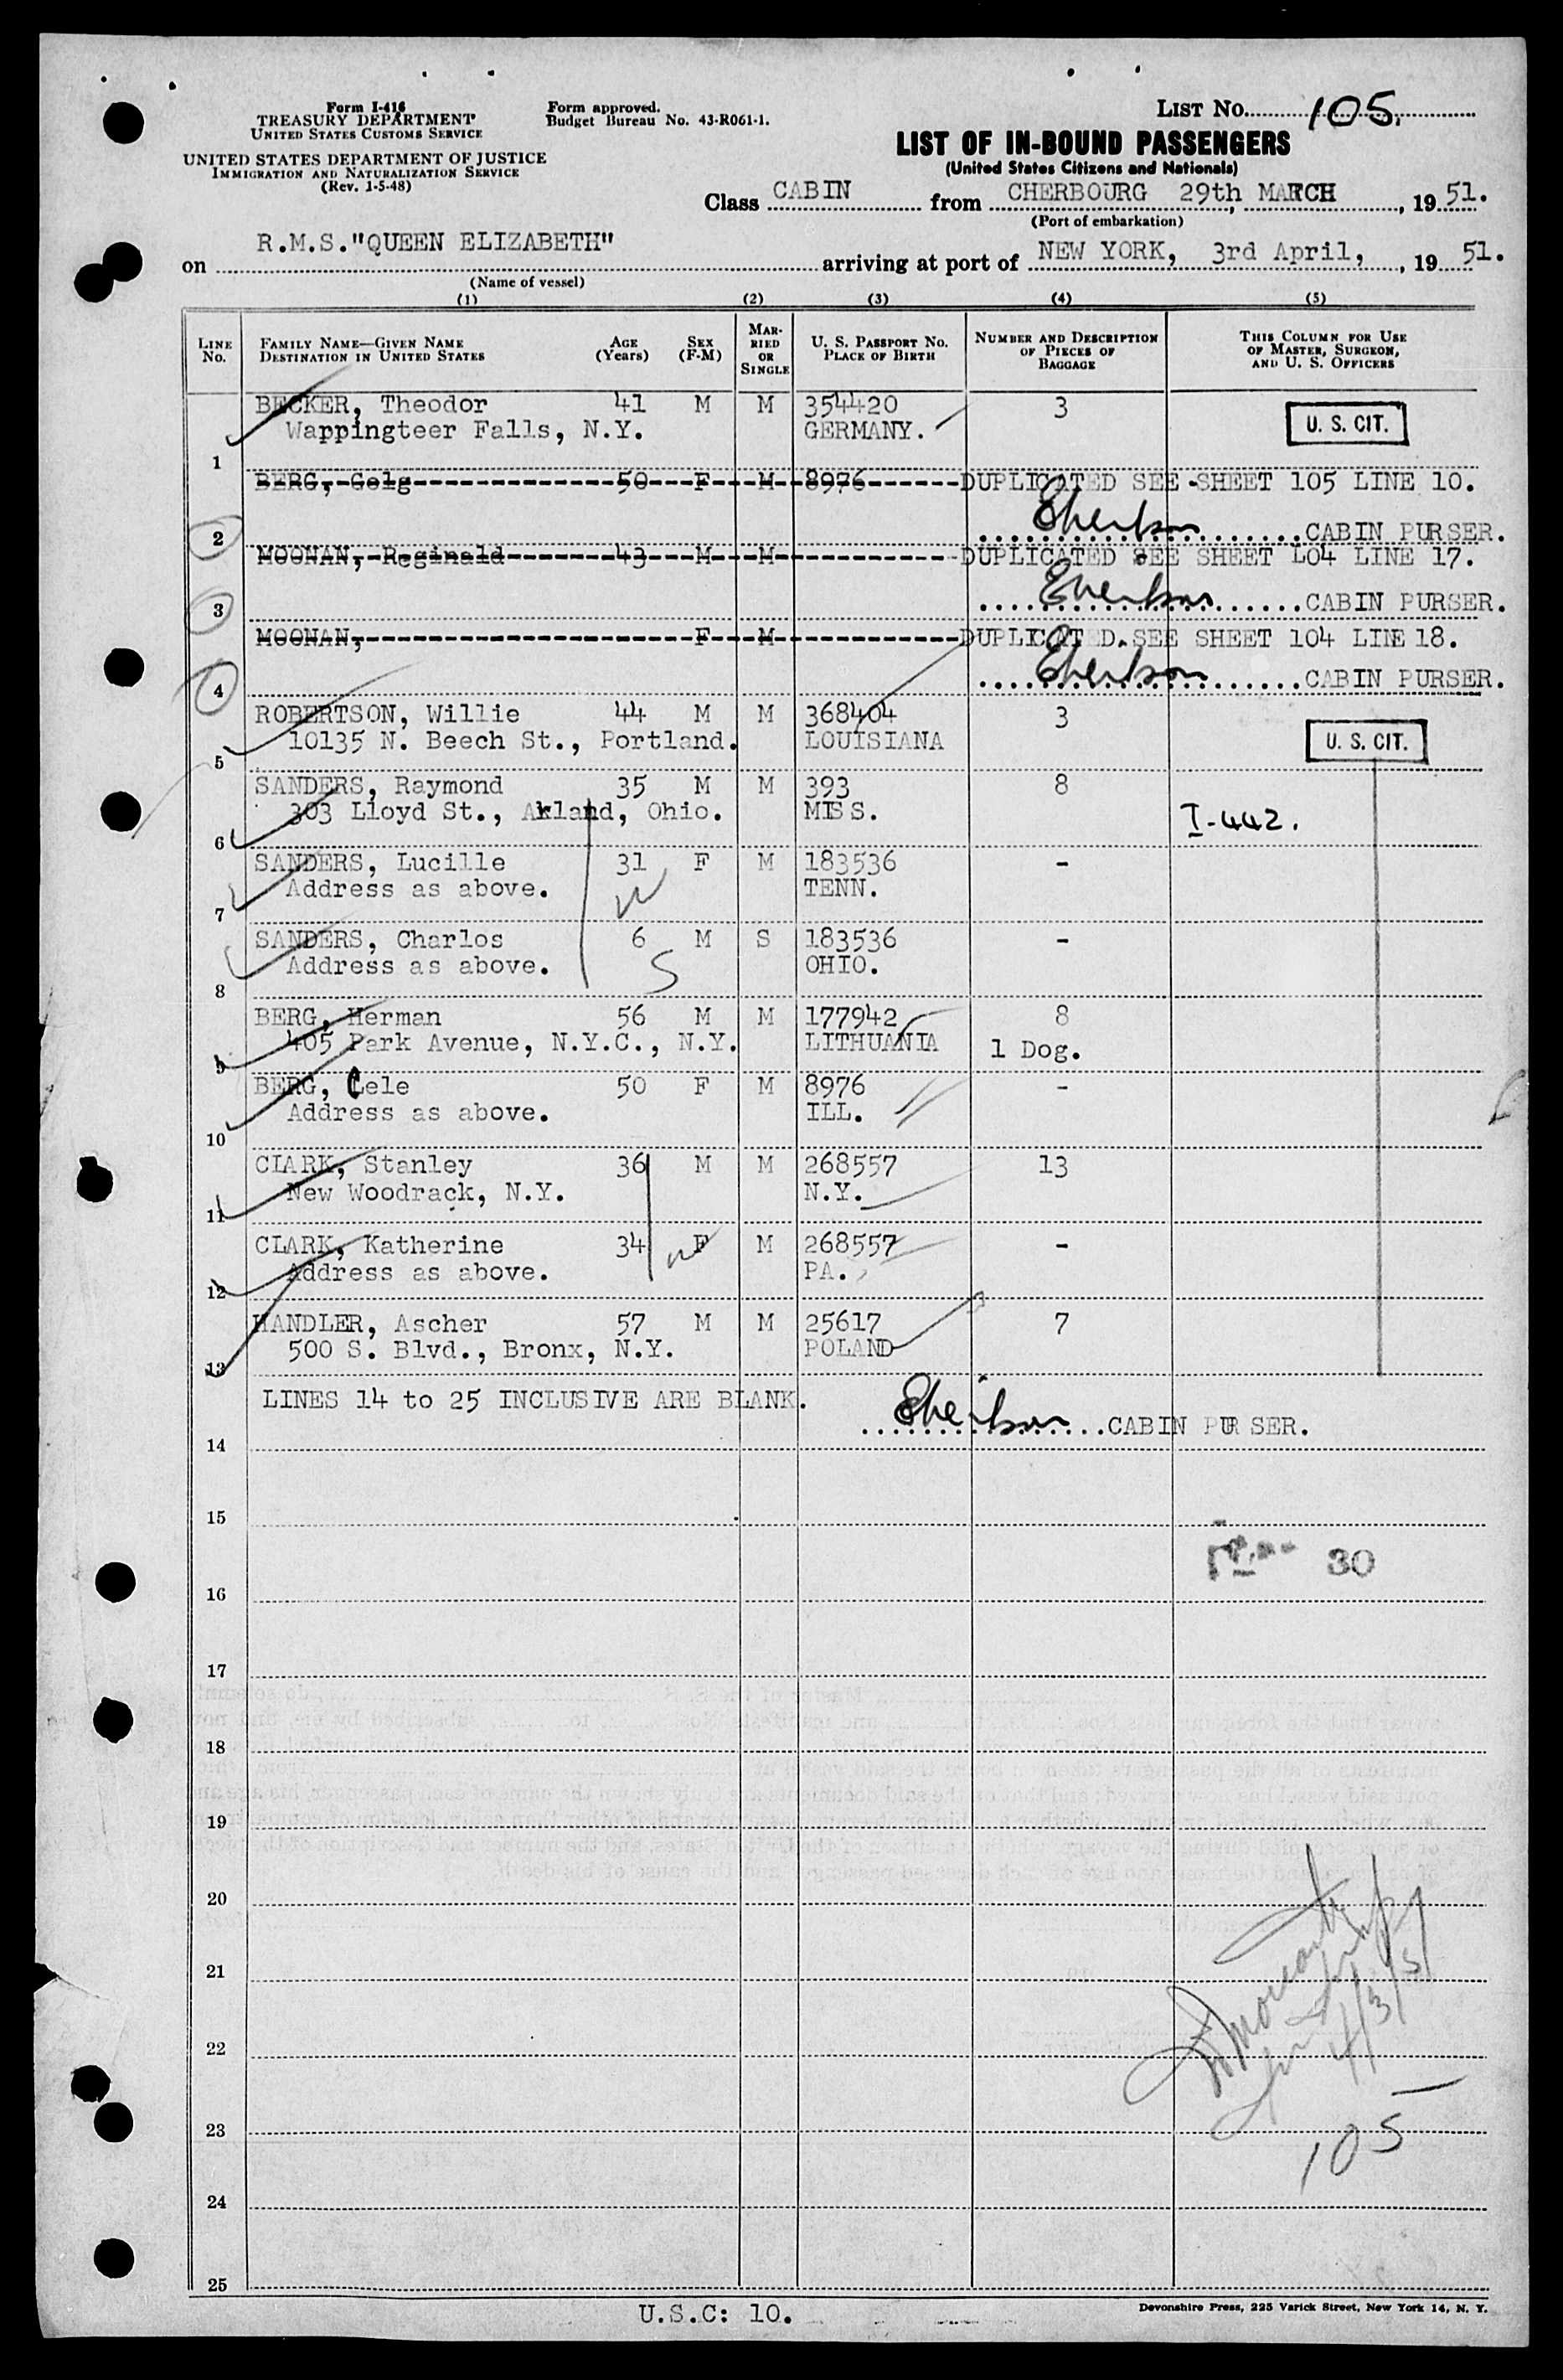 Form I-416
TREASURY DEPARTMENT
UNITED STATES CUSTOMS SERVICE
UNITED STATES DEPARTMENT OF JUSTICE
IMMIGRATION AND NATURALIZATION SERVICE
(Rev. 1-5-48)
Form approved.
Budget Bureau No. 43-R061-1.
LIST NO. 105.
LIST OF IN-BOUND PASSENGERS
(United States Citizens and Nationals)
Class CABIN from CHERBOURG 29th, MARCH, 1951.
(Port of embarkation)
on R.M.S."QUEEN ELIZABETH" arriving at port of NEW YORK, 3rd April, , 19 51.
(Name of vessel)
(1) (2) (3) (4) (5)
LINE NO. FAMILY NAME—GIVEN NAME DESTINATION IN UNITED STATES AGE (Years) SEX (F-M) MARRIED OR SINGLE U. S. PASSPORT NO. PLACE OF BIRTH NUMBER AND DESCRIPTION OF PIECES OF BAGGAGE THIS COLUMN FOR USE OF MASTER, SURGEON, AND U. S. OFFICERS
BECKER, Theodor 41 M M 354420 3 U. S. CIT.
Wappingteer Falls, N.Y. GERMANY.
1
BERG, Gelg 50 F M 8976 DUPLICATED SEE SHEET 105 LINE 10.
2 CABIN PURSER.
MOONAN, Reginald 43 M M DUPLICATED SEE SHEET 104 LINE 17.
3 CABIN PURSER.
MOONAN, F M DUPLICATED.SEE SHEET 104 LINE 18.
4 CABIN PURSER.
ROBERTSON, Willie 44 M M 368404 3
10135 N. Beech St., Portland. LOUISIANA U. S. CIT.
5
SANDERS, Raymond 35 M M 393 8
303 Lloyd St., Akland, Ohio. MISS. I-442.
6
SANDERS, Lucille 31 F M 183536 -
Address as above. TENN.
7
SANDERS, Charlos 6 M S 183536 -
Address as above. S OHIO.
8
BERG, Herman 56 M M 177942 8
405 Park Avenue, N.Y.C., N.Y. LITHUANIA 1 Dog.
9
BERG, Cele 50 F M 8976 -
Address as above. ILL.
10
CLARK, Stanley 36 M M 268557 13
New Woodrack, N.Y. N.Y.
11
CLARK, Katherine 34 F M 268557 -
Address as above. PA.
12
HANDLER, Ascher 57 M M 25617 7
500 S. Blvd., Bronx, N.Y. POLAND
13
LINES 14 to 25 INCLUSIVE ARE BLANK.
CABIN PURSER.
14
15
30
16
17
18
19
20
21
22
4/3/51
23
105
24
25
U.S.C: 10.
Devonshire Press, 225 Varick Street, New York 14, N. Y.